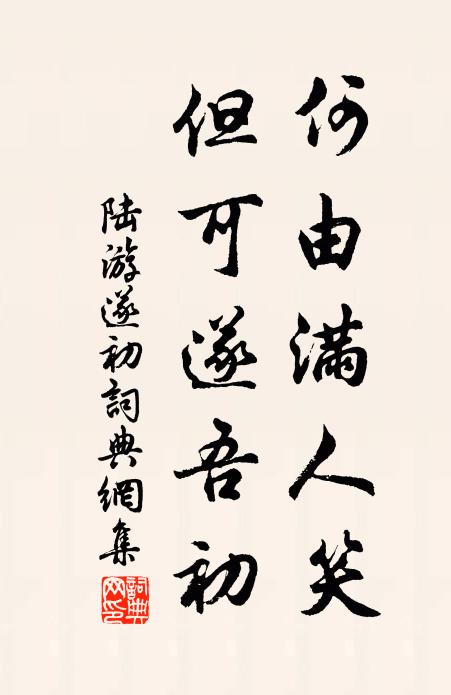 何由滿人笑
但可遂吾初
陆游遂初詞典網集
詞典网印